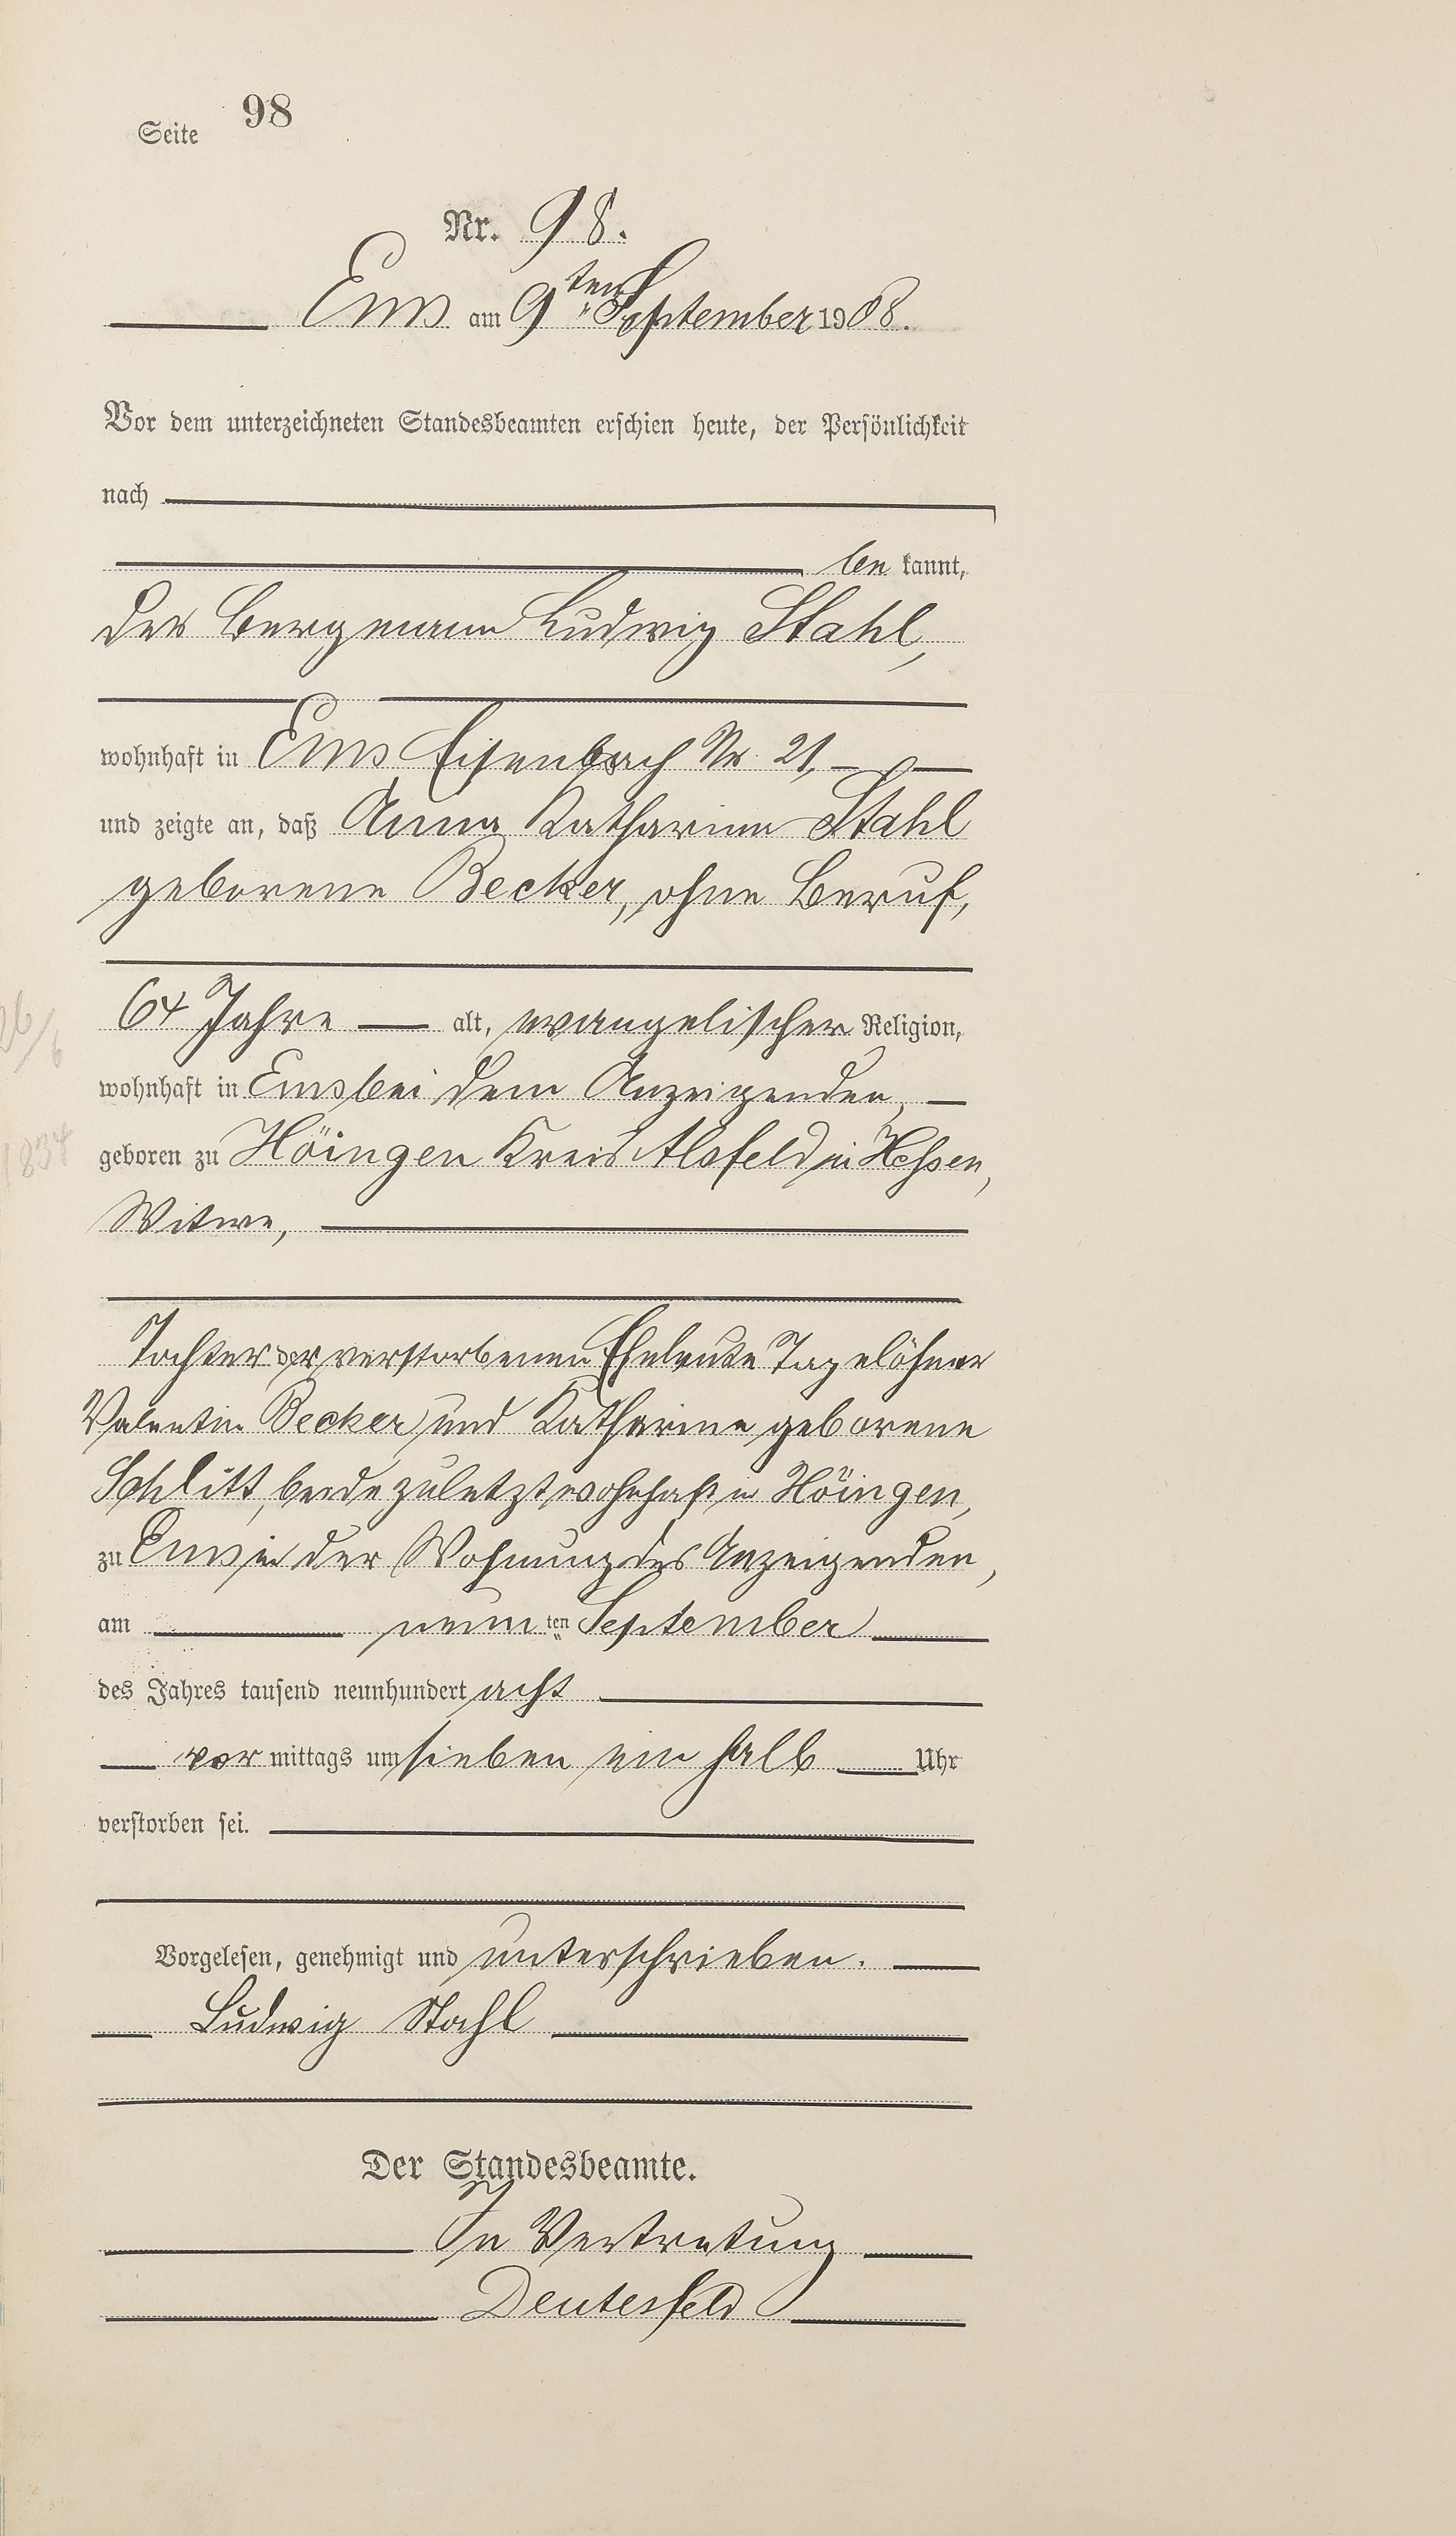 Seite 98
Nr. 98.
Ems am 9ten September 1908.
Vor dem unterzeichneten Standesbeamten erschien heute, der Persönlichkeit
nach
be kannt,
der Bergmann Ludwig Stahl,
wohnhaft in Ems Eisenbach Nr. 21,
und zeigte an, daß Anna Katharina Stahl
geborene Becker, ohne Beruf,
64 Jahre alt, evangelischer Religion,
wohnhaft in Ems bei dem Anzeigenden,
geboren zu Höingen Kreis Alsfeld in Hessen,
Witwe,
Tochter der verstorbenen Eheleute Tagelöhner
Valentin Becker und Katharina geborene
Schlitt, beide zuletzt wohnhaft in Höingen,
zu Ems in der Wohnung des Anzeigenden,
am neunten September
des Jahres tausend neunhundert acht
vor mittags um sieben ein halb Uhr
verstorben sei.
Vorgelesen, genehmigt und unterschrieben.
Ludwig Stahl
Der Standesbeamte.
In Vertretung
Deutesfeld
26/6
1834